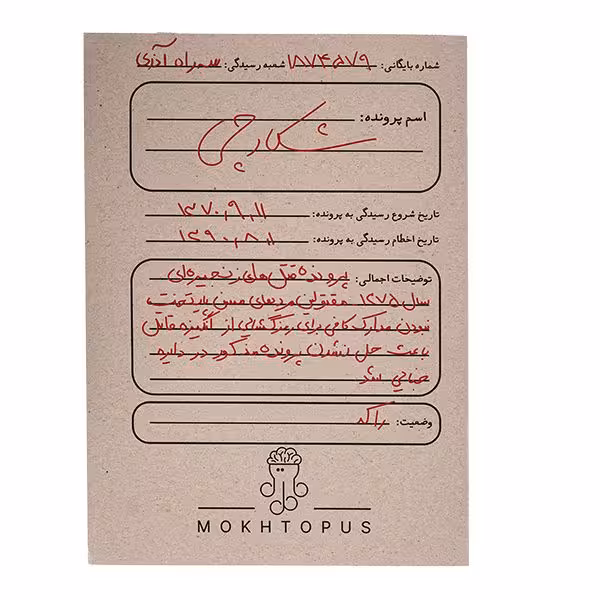 شماره بایگانی: ۱۸۷۴۵۷۹ شعبه رسیدگی: سه راه آذری
اسم پرونده:
شکارچی
تاریخ شروع رسیدگی به پرونده: ۱۳۷۰,۹,۱۱
تاریخ اخطام رسیدگی به پرونده: ۱۳۹۰,۸,۱
توضیحات اجمالی: پرونده قتل های زنجیره‌ای
سال ۱۲۷۵ مقتولین مردهای مسن پایتخت
نبودن مدارک کافی برای رمزگشایی از انگیزه قاتل
باعث حل نشدن پرونده مذکور در دایره
جنایی شد
وضعیت: راکد
MOKHTOPUS